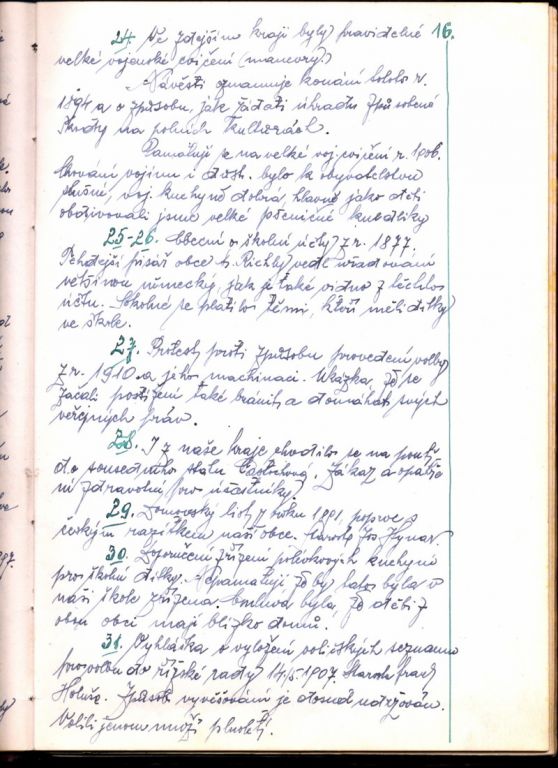 24. Ve zdejším kraji byly pravidelné 16.
velké vojenské cvičení (manevry)
Návěstí oznamuje konání tohoto r.
1894 a o způsobu, jak žádati úhradu způsobené
škody na polních kulturách.
Pamatuji se na velké voj. cvičení r. 1906.
Chování vojínu i dost. bylo k obyvatelstvu
slušné, voj. kuchyně dobrá, hlavně jako děti
obdivovali jsme velké pšeničné knedlíky
25-26. Obecní a školní účty z r. 1877.
Tehdejší písař obce Richlý vedl úřadování
většinou německy, jak je také vidno z těchto
účtu. Školné se platilo těmi, kteří měli dítky
ve škole.
27. Protest proti způsobu provedení volby
z r. 1910 a jeho machinaci. Ukázka, že se
začali postižení také brániti a domáhat svých
veřejných práv.
28. I z naše kraje chodilo se na pouť
do sousedního státu Častochová. Zákaz a opatře
ní zdravotní pro účastníky.
29. Domovský list z roku 1891, poprve s
českým razítkem naší obce. Starosta Jos. Hynar.
30. Doporučení zřízení polévkových kuchyní
pro školní dítky. Nepamatuji, že by tato byla v
naší škole zřízena. Omluva byla, že děti z
obou obcí mají blízko domů.
31. Vyhláška o vyložení voličských seznamu
pro volbu do říšské rady 14/5 1907. Starosta
Holuše. Způsob vyvěšování je dosud udržován.
Volili jenom muži plnoletí.